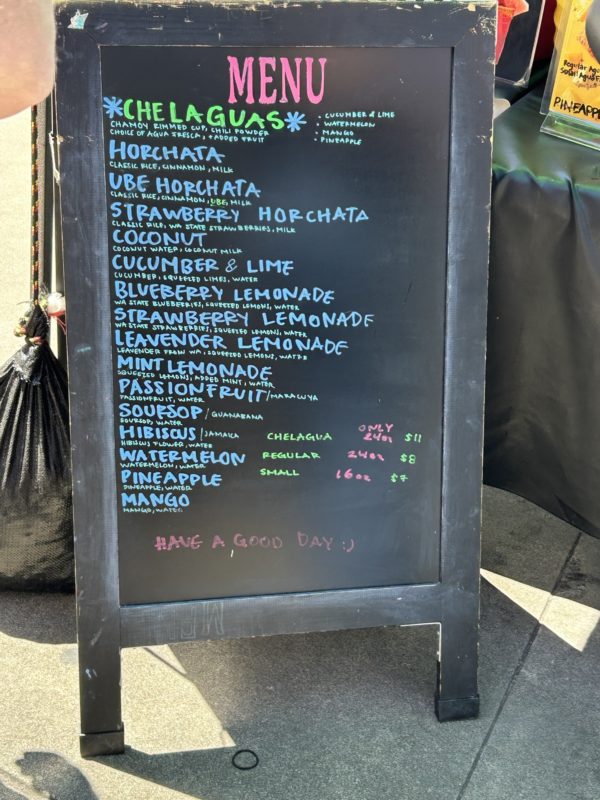 MENU
*CHELAGUAS*
CHAMOY RIMMED CUP, CHILI POWDER
CHOICE OF AGUA FRESCA, + ADDED FRUIT
• CUCUMBER & LIME
• WATERMELON
• MANGO
• PINEAPPLE
HORCHATA
CLASSIC RICE, CINNAMON, MILK
UBE HORCHATA
CLASSIC RICE, CINNAMON, UBE, MILK
STRAWBERRY HORCHATA
CLASSIC RICE, WA STATE STRAWBERRIES, MILK
COCONUT
COCONUT WATER, COCONUT MILK
CUCUMBER & LIME
CUCUMBER, SQUEEZED LIMES, WATER
BLUEBERRY LEMONADE
WA STATE BLUEBERRIES, SQUEEZED LEMONS, WATER
STRAWBERRY LEMONADE
WA STATE STRAWBERRIES, SQUEEZED LEMONS, WATER
LEAVENDER LEMONADE
LEAVENDER FROM WA, SQUEEZED LEMONS, WATER
MINT LEMONADE
SQUEEZED LEMONS, ADDED MINT, WATER
PASSIONFRUIT/MARACUYA
PASSIONFRUIT, WATER
SOURSOP/GUANABANA
SOURSOP, WATER
HIBISCUS/JAMAICA
HIBISCUS FLOWER, WATER
WATERMELON
WATERMELON, WATER
PINEAPPLE
PINEAPPLE, WATER
MANGO
MANGO, WATER
ONLY
CHELAGUA 24oz $11
REGULAR 24oz $8
SMALL 16oz $7
HAVE A GOOD DAY :)
PINEAPPLE